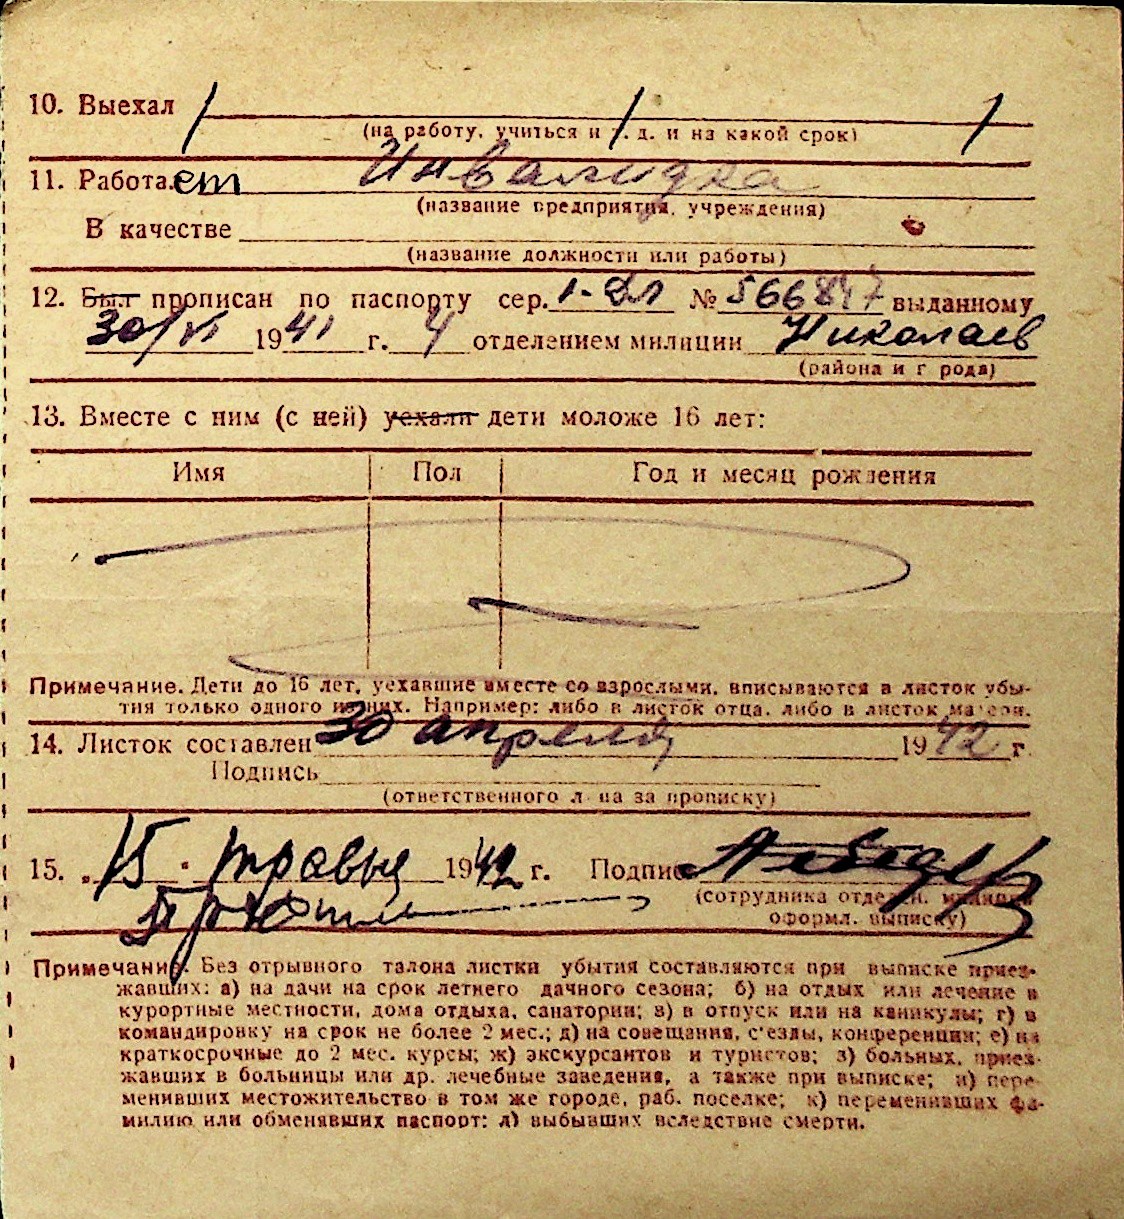 10. Выехал
(на работу, учиться и т. д. и на какой срок)
11. Работает Инвалидка
(название предприятия, учреждения)
В качестве
(название должности или работы)
12. Был прописан по паспорту сер. 1-ДЛ № 566847 выданному
30/VI 1941 г. 4 отделением милиции Николаев
(района и города)
13. Вместе с ним (с ней) уехали дети моложе 16 лет:
Имя Пол Год и месяц рождения
Примечание. Дети до 16 лет, уехавшие вместе со взрослыми, вписываются в листок убы-
тия только одного из них. Например: либо в листок отца, либо в листок матери.
14. Листок составлен 30 апреля 1942 г.
Подпись
(ответственного лица за прописку)
15. „15" травня 1942 г. Подпись
(сотрудника отделен. милиции
оформл. выписку)
Примечание. Без отрывного талона листки убытия составляются при выписке приез-
жавших: а) на дачи на срок летнего дачного сезона; б) на отдых или лечение в
курортные местности, дома отдыха, санатории; в) в отпуск или на каникулы; г) в
командировку на срок не более 2 мес.; д) на совещания, с'езды, конференции; е) на
краткосрочные до 2 мес. курсы; ж) экскурсантов и туристов; з) больных, приез-
жавших в больницы или др. лечебные заведения, а также при выписке; и) пере-
менивших местожительство в том же городе, раб. поселке; к) переменивших фа-
милию или обменявших паспорт; л) выбывших вследствие смерти.